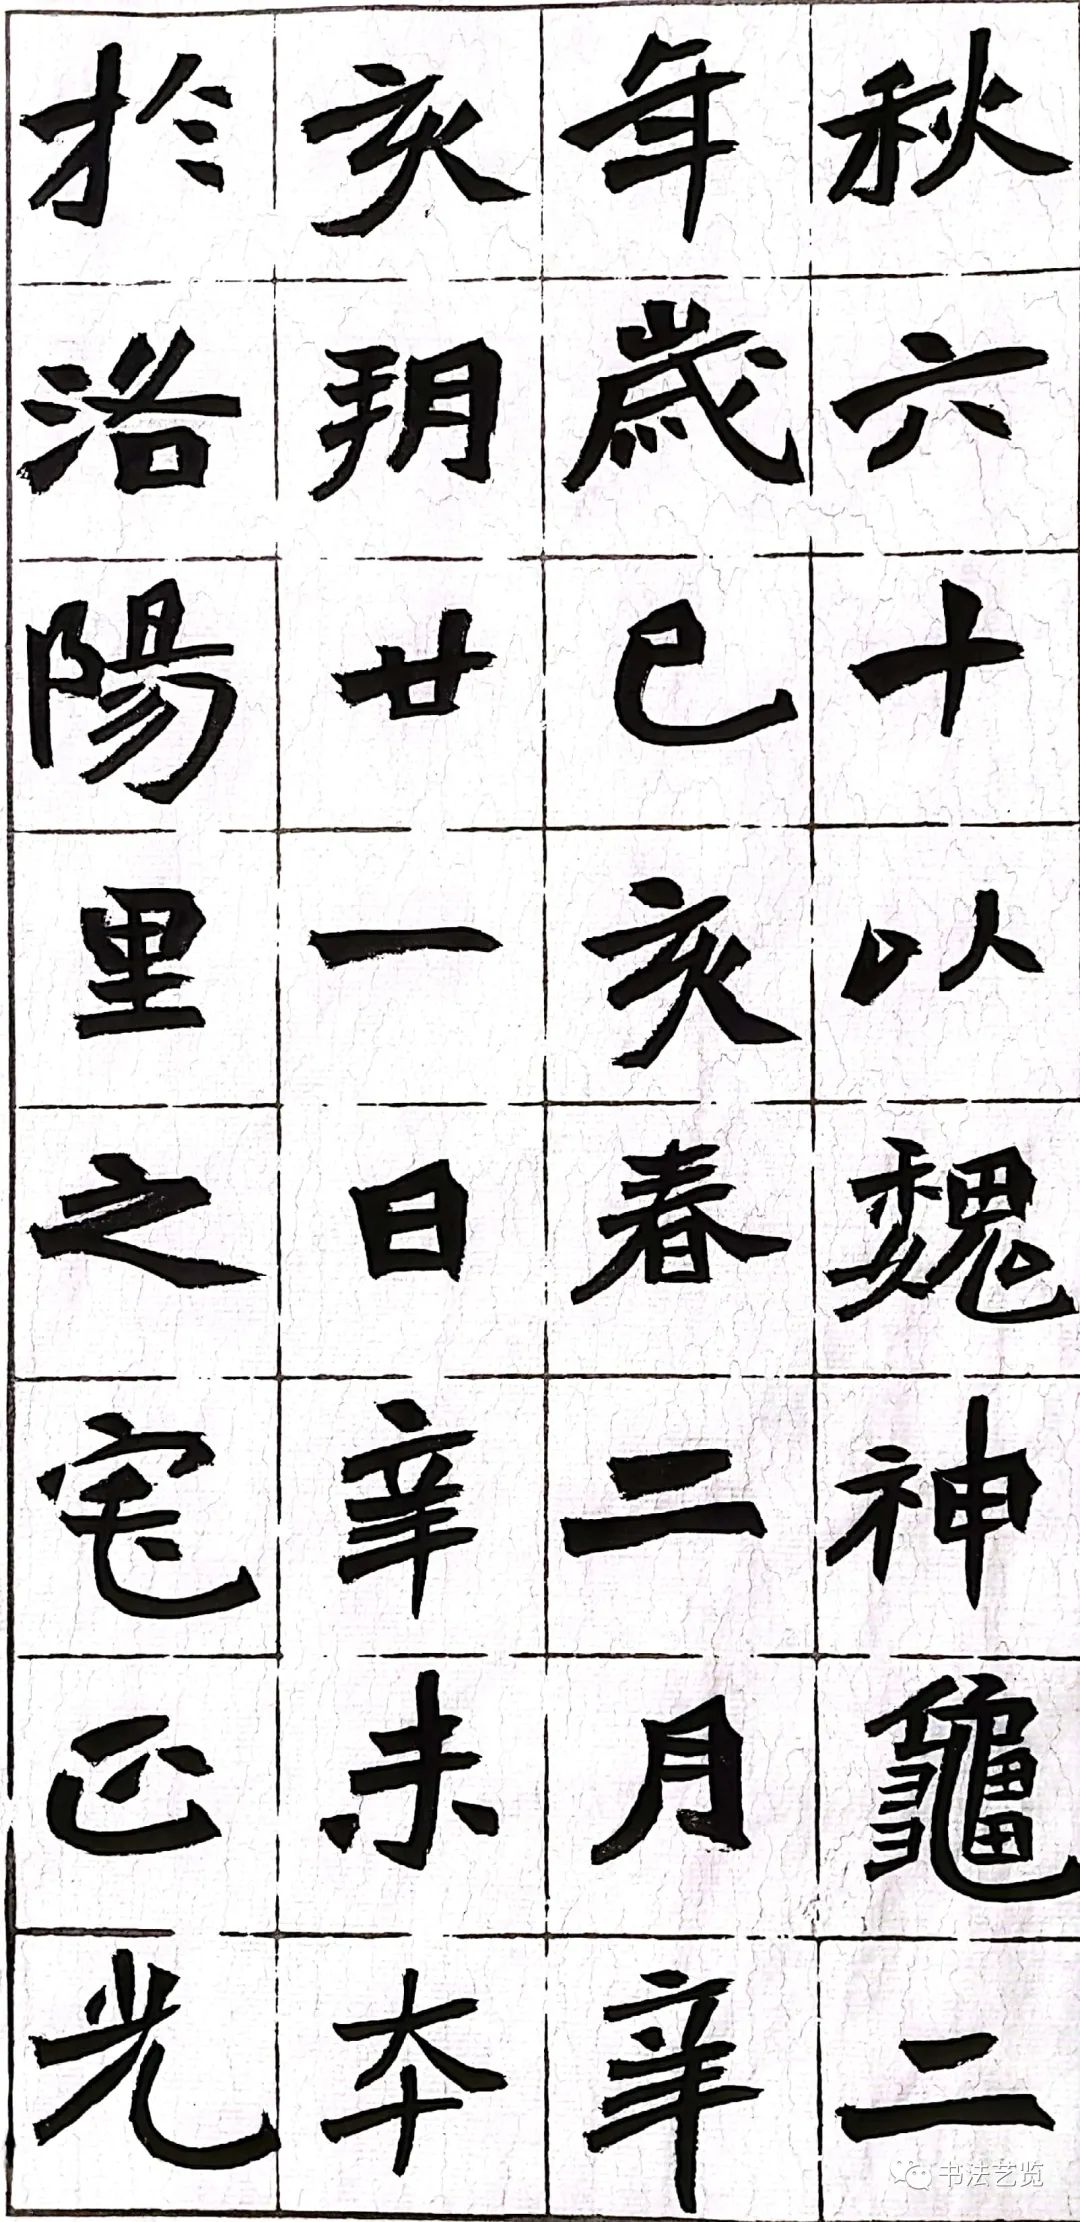 秋六十以魏神龜二
年歲己亥春二月辛
亥朔廿一日辛未卒
於洛陽里之宅正光
书法艺览